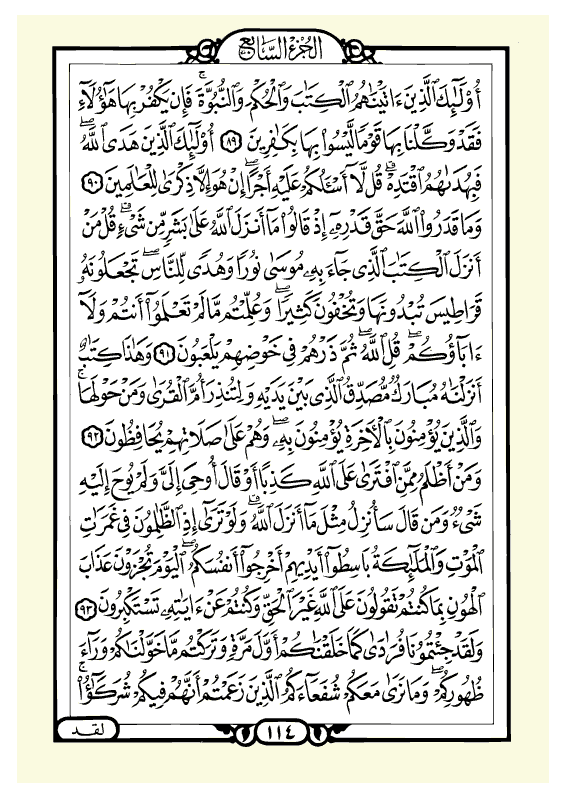 الجزء السابع
أُوْلَٰٓئِكَ ٱلَّذِينَ ءَاتَيْنَٰهُمُ ٱلْكِتَٰبَ وَٱلْحُكْمَ وَٱلنُّبُوَّةَۚ فَإِن يَكْفُرْ بِهَا هَٰٓؤُلَآءِ
فَقَدْ وَكَّلْنَا بِهَا قَوْمًا لَّيْسُوا۟ بِهَا بِكَٰفِرِينَ ٨٩ أُوْلَٰٓئِكَ ٱلَّذِينَ هَدَى ٱللَّهُۖ
فَبِهُدَىٰهُمُ ٱقْتَدِهْۗ قُل لَّآ أَسْـَٔلُكُمْ عَلَيْهِ أَجْرًاۖ إِنْ هُوَ إِلَّا ذِكْرَىٰ لِلْعَٰلَمِينَ ٩٠
وَمَا قَدَرُوا۟ ٱللَّهَ حَقَّ قَدْرِهِۦٓ إِذْ قَالُوا۟ مَآ أَنزَلَ ٱللَّهُ عَلَىٰ بَشَرٍ مِّن شَىْءٍۗ قُلْ مَنْ
أَنزَلَ ٱلْكِتَٰبَ ٱلَّذِى جَآءَ بِهِۦ مُوسَىٰ نُورًا وَهُدًى لِّلنَّاسِۖ تَجْعَلُونَهُۥ
قَرَاطِيسَ تُبْدُونَهَا وَتُخْفُونَ كَثِيرًاۖ وَعُلِّمْتُم مَّا لَمْ تَعْلَمُوٓا۟ أَنتُمْ وَلَآ
ءَابَآؤُكُمْۖ قُلِ ٱللَّهُۖ ثُمَّ ذَرْهُمْ فِى خَوْضِهِمْ يَلْعَبُونَ ٩١ وَهَٰذَا كِتَٰبٌ
أَنزَلْنَٰهُ مُبَارَكٌ مُّصَدِّقُ ٱلَّذِى بَيْنَ يَدَيْهِ وَلِتُنذِرَ أُمَّ ٱلْقُرَىٰ وَمَنْ حَوْلَهَاۚ
وَٱلَّذِينَ يُؤْمِنُونَ بِٱلْءَاخِرَةِ يُؤْمِنُونَ بِهِۦۖ وَهُمْ عَلَىٰ صَلَاتِهِمْ يُحَافِظُونَ ٩٢
وَمَنْ أَظْلَمُ مِمَّنِ ٱفْتَرَىٰ عَلَى ٱللَّهِ كَذِبًا أَوْ قَالَ أُوحِىَ إِلَىَّ وَلَمْ يُوحَ إِلَيْهِ
شَىْءٌ وَمَن قَالَ سَأُنزِلُ مِثْلَ مَآ أَنزَلَ ٱللَّهُۗ وَلَوْ تَرَىٰٓ إِذِ ٱلظَّٰلِمُونَ فِى غَمَرَٰتِ
ٱلْمَوْتِ وَٱلْمَلَٰٓئِكَةُ بَاسِطُوٓا۟ أَيْدِيهِمْ أَخْرِجُوٓا۟ أَنفُسَكُمُۖ ٱلْيَوْمَ تُجْزَوْنَ عَذَابَ
ٱلْهُونِ بِمَا كُنتُمْ تَقُولُونَ عَلَى ٱللَّهِ غَيْرَ ٱلْحَقِّ وَكُنتُمْ عَنْ ءَايَٰتِهِۦ تَسْتَكْبِرُونَ ٩٣
وَلَقَدْ جِئْتُمُونَا فُرَٰدَىٰ كَمَا خَلَقْنَٰكُمْ أَوَّلَ مَرَّةٍ وَتَرَكْتُم مَّا خَوَّلْنَٰكُمْ وَرَآءَ
ظُهُورِكُمْۖ وَمَا نَرَىٰ مَعَكُمْ شُفَعَآءَكُمُ ٱلَّذِينَ زَعَمْتُمْ أَنَّهُمْ فِيكُمْ شُرَكَٰٓؤُا۟ۚ
لقد
١١٤